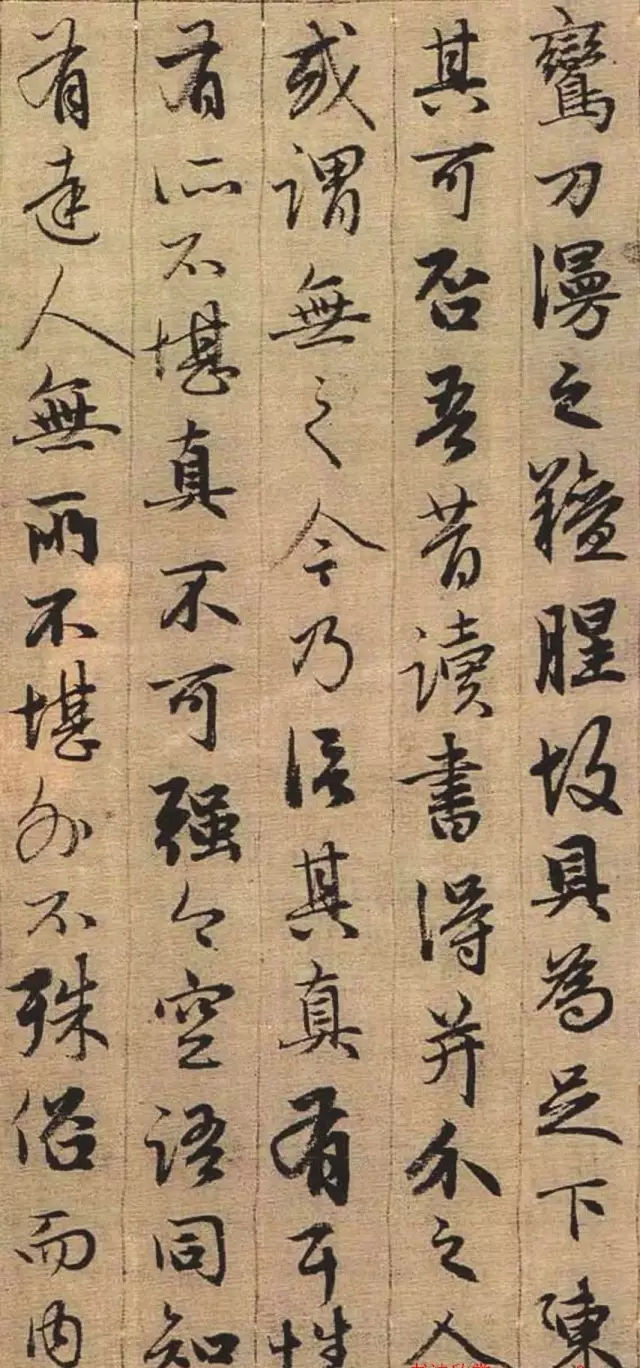 鸞刀漫之羶腥故具為足下陳
其可否吾昔讀書得并介之人
或謂無之今乃信其真有耳性
有所不堪真不可强今空語同知
有達人無所不堪外不殊俗而內